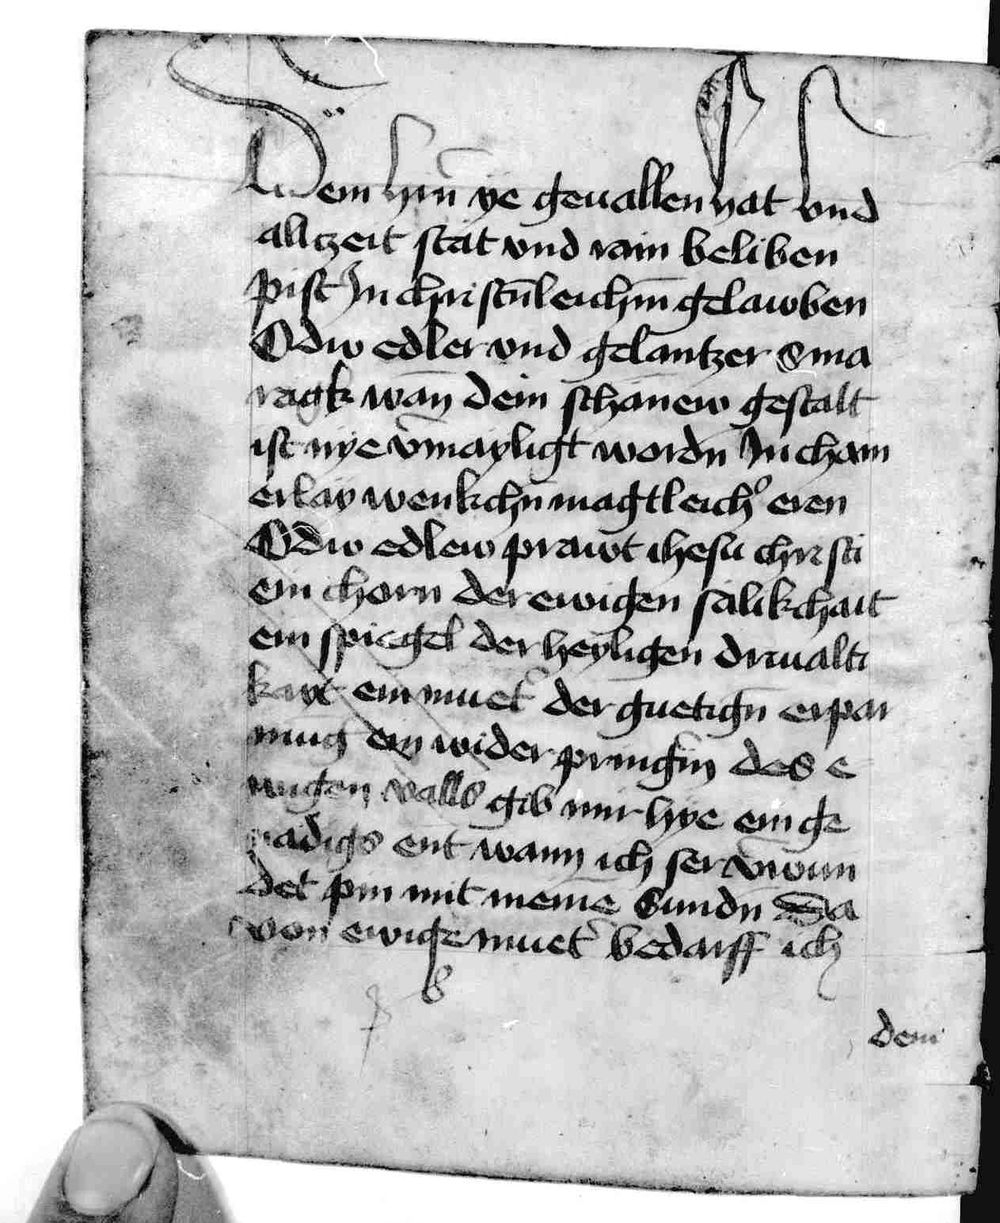 dem hm̄ ye geuallen hat vnd
allczeit stät vnd rain beliben
pist In christ̄nleichm̄ gelawben
O dw edler vnd gelantzer Sma
ragk wan̄ dein schänew gestalt
ist nye v̄mayligt wordn̄ In cham
erlay wenkchn̄ magtleich̾ eren
O dw edlew prawt ihesu christi
ein chorn der ewigen sälikchait
ein spiegel der heyligen driualti
kayt ein muet̾ der guetign̄ erpar
mūg ein wider pringerin des e
wigen valls gib mir hye ein ge
nadigs ent wann ich ser v̾wun
det pin mit meinē Sundn̄ Da
von ewige muet̾ bedarff ich
dein